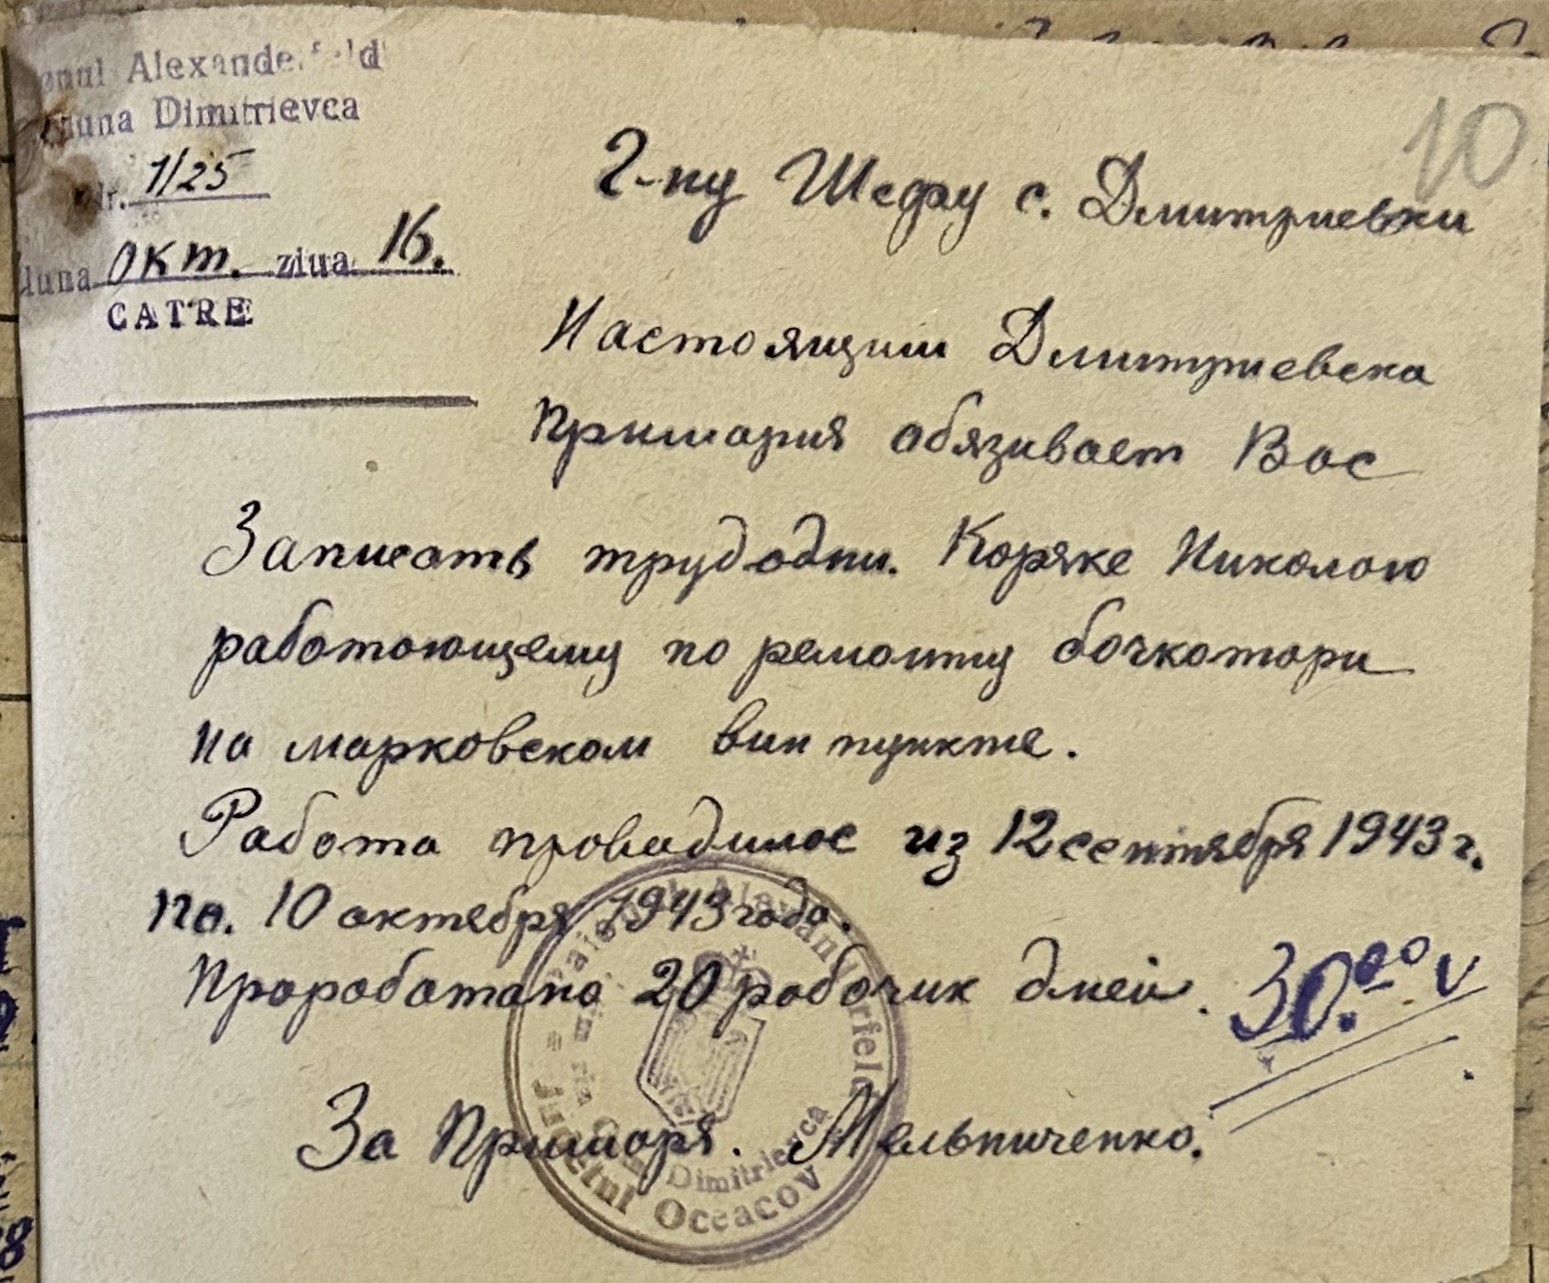 onul Alexanderfeld
una Dimitrievca
Nr. 1/25
luna окт. ziua 16.
CATRE
10
Г-ну Шефу с. Дмитриевки
Настоящим Дмитриевска
Примария обязивает Вас
Записать трудодни. Коряке Николою
работающему по ремонту бочкотари
на марковском вин пункте.
Работа проводилос из 12 сентября 1943 г.
По. 10 октября 1943 года.
Проработано 20 рабочих дней. 30.00 v
За Примаря. Мельниченко.
Raionul Alexanderfeld
Dimitrievca
Judetul Oceacov